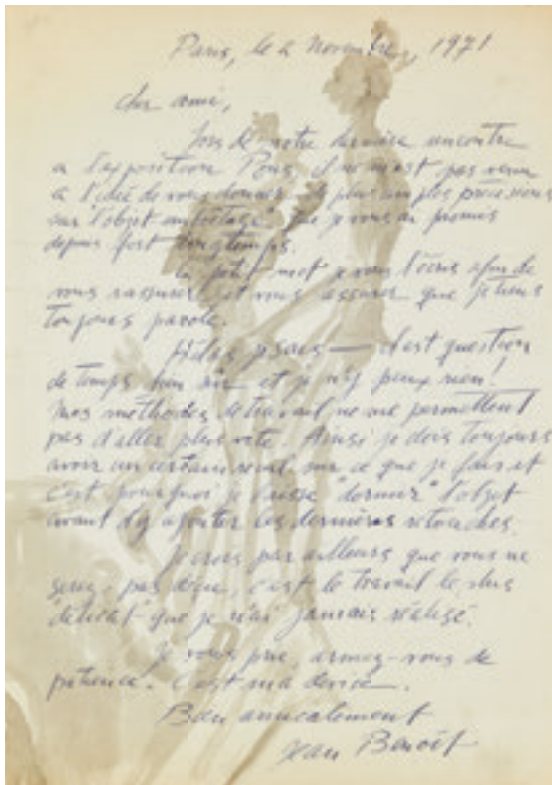 Paris, le 2 Novembre, 1971
cher ami,
Lors de notre dernière rencontre
à l'exposition Pons, il ne m'est pas venu
à l'idée de vous donner plus amples précisions
sur l'objet que je vous ai promis
depuis fort longtemps.
Ce petit mot je vous l'écris afin de
vous rassurer et vous assurer que je tiens
toujours parole.
Hélas, je sais — c'est question
de temps bien sûr et je n'y peux rien!
Mes méthodes de travail ne me permettent
pas d'aller plus vite. Ainsi je dois toujours
avoir un certain recul sur ce que je fais et
c'est pourquoi je laisse "dormir" l'objet
avant d'y ajouter les dernières retouches.
Je crois par ailleurs que vous ne
serez pas déçu, c'est le travail le plus
"délicat" que je n'ai jamais réalisé.
Je vous prie, armez-vous de
patience. C'est ma devise.
Bien amicalement
Jean Benoît